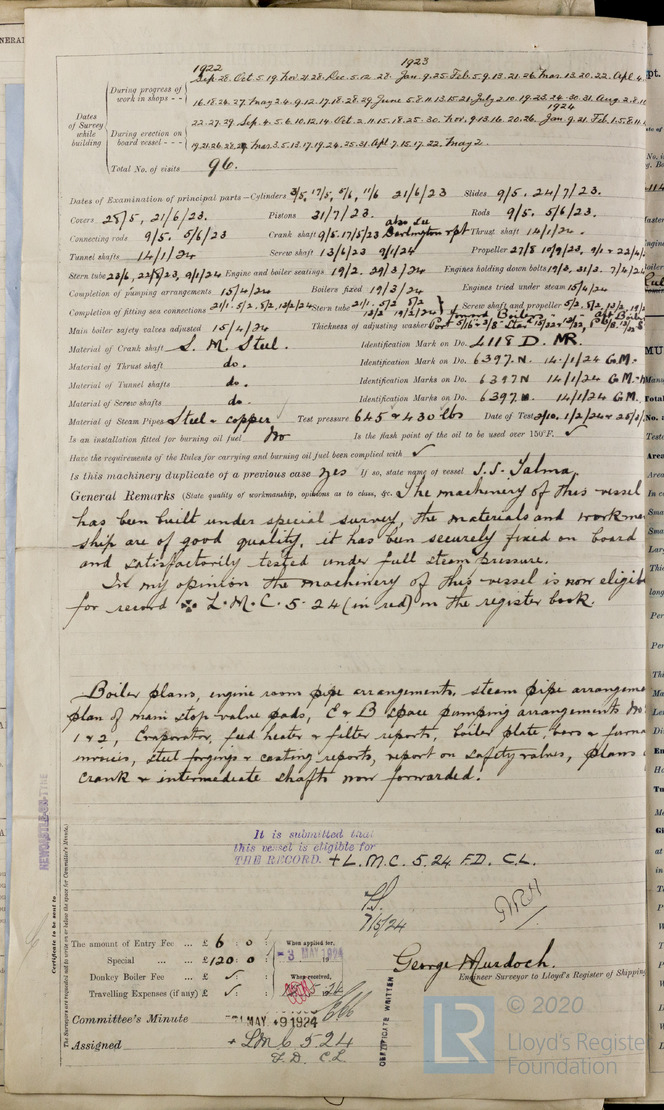 1922 1923
Sep. 28. Oct. 5. 19. Nov. 21. 28. Dec. 5. 12. 28. Jan. 9. 25. Feb. 5. 9. 13. 21. 26. Mar. 13. 20. 22. Apl. 4.
During progress of work in shops - -
16. 18. 24. 27. May 2. 4. 9. 12. 17. 18. 28. 29. June 5. 8. 11. 13. 15. 21. July 2. 10. 19. 23. 24. 30. 31. Aug. 2. 8. 10
1924
Dates of Survey while building
22. 27. 29. Sep. 4. 5. 6. 10. 12. 14. Oct. 2. 11. 15. 18. 25. 30. Nov. 9. 13. 16. 20. 26. Jan. 9. 21. Feb. 1. 5. 8. 11.
During erection on board vessel - - -
19. 21. 26. 28. 29. Mar. 3. 5. 13. 17. 19. 24. 25. 31. Apl. 7. 15. 17. 22. May 2.
Total No. of visits 96.
Dates of Examination of principal parts—Cylinders 3/5, 17/5, 5/6, 11/6 21/6/23 Slides 9/5. 24/7/23.
Covers 25/5, 21/6/23. Pistons 31/7/23. Rods 9/5, 5/6/23.
Connecting rods 9/5, 5/6/23 Crank shaft 9/5. 17/5/23 also see Darlington rpt Thrust shaft 14/1/24.
Tunnel shafts 14/1/24 Screw shaft 13/6/23 9/1/24 Propeller 27/8 10/9/23, 9/1 & 22/4/
Stern tube 23/6, 22/8/23, 9/1/24 Engine and boiler seatings 19/2. 29/3/24 Engines holding down bolts 19/3, 31/3. 7/4/24
Completion of pumping arrangements 15/4/24 Boilers fixed 19/3/24 Engines tried under steam 15/4/24
Completion of fitting sea connections 21/1. 5/2. 8/2, 13/2/24 Stern tube 21/1. 5/2 8/2 13/2 19/2/24 Screw shaft and propeller 5/2. 8/2, 13/2, 19/2
Main boiler safety valves adjusted 15/4/24 Thickness of adjusting washers
Material of Crank shaft S. M. Steel. Identification Mark on Do. 4118 D. NR.
Material of Thrust shaft do. Identification Mark on Do. 6397.N. 14/1/24 G.M.
Material of Tunnel shafts do. Identification Marks on Do. 6397N 14/1/24 G.M.
Material of Screw shafts do. Identification Marks on Do. 6397.N. 14/1/24 G.M.
Material of Steam Pipes Steel & copper Test pressure 645 & 430 lbs Date of Test 2/10. 1/2/24 & 25/3/
Is an installation fitted for burning oil fuel No Is the flash point of the oil to be used over 150°F. ✓
Have the requirements of the Rules for carrying and burning oil fuel been complied with ✓
Is this machinery duplicate of a previous case Yes If so, state name of vessel S.S. Talma
General Remarks (State quality of workmanship, opinions as to class, &c. The machinery of this vessel
has been built under special survey, the materials and workman
ship are of good quality, it has been securely fixed on board
and satisfactorily tested under full steam pressure.
In my opinion the machinery of this vessel is now eligib
for record ✠ L.M.C. 5.24 (in red) in the register book.
Boiler plans, engine room pipe arrangements, steam pipe arrangeme
plan of main stop valve pads, E & B space pumping arrangements No
1 & 2, Evaporator, feed heater & filter reports, boiler plate, bars & furna
invoices, steel forgings & casting reports, report on safety valves, plans
crank & intermediate shafts now forwarded.
NEWCASTLE-ON-TYNE
Certificate to be sent to
The Surveyors are requested not to write on or below the space for Committee's Minute.
It is submitted that
this vessel is eligible for
THE RECORD. + L.M.C. 5.24 F.D. C.L.
7/5/24
The amount of Entry Fee ... £ 6 : 0 : When applied for,
Special ... ... £ 120 : 0 : -3 MAY 1924
Donkey Boiler Fee ... £ ✓ : When received,
Travelling Expenses (if any) £ ✓ :
George Murdoch.
Engineer Surveyor to Lloyd's Register of Shipping
CERTIFICATE WRITTEN
Committee's Minute FRI. MAY 9 1924
Assigned + LMC 5.24
F.D. C.L.
LR
© 2020
Lloyd's Register
Foundation